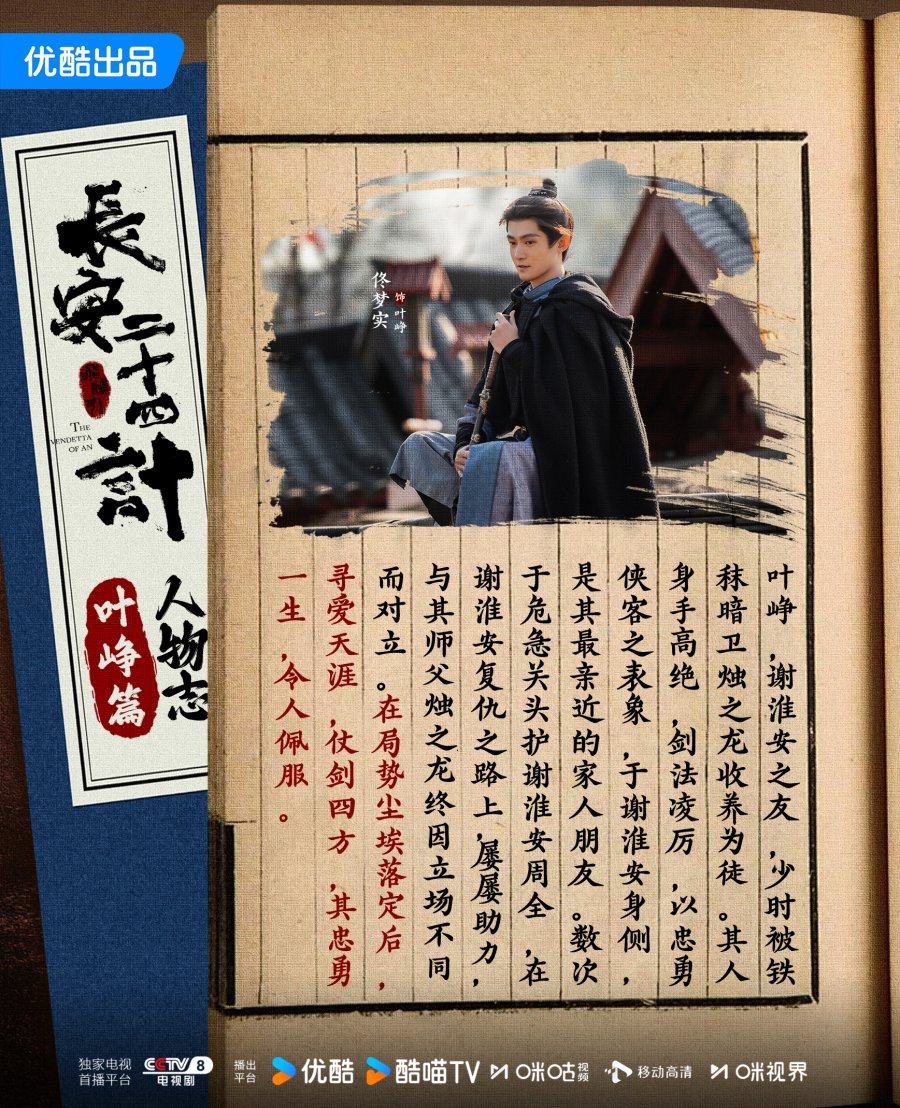 优酷出品
長安
二十四
計
THE
VENDETTA
OF AN
人物志
叶峥篇
佟梦实
饰
叶峥
叶峥，谢淮安之友，少时被铁
秣暗卫烛之龙收养为徒。其人
身手高绝，剑法凌厉，以忠勇
侠客之表象，于谢淮安身侧，
是其最亲近的家人朋友。数次
于危急关头护谢淮安周全，在
谢淮安复仇之路上，屡屡助力，
与其师父烛之龙终因立场不同
而对立。在局势尘埃落定后，
寻爱天涯，仗剑四方，其忠勇
一生，令人佩服。
独家电视
首播平台
CCTV 8
电视剧
播出
平台
优酷
酷喵TV
咪咕视频
移动高清
咪视界